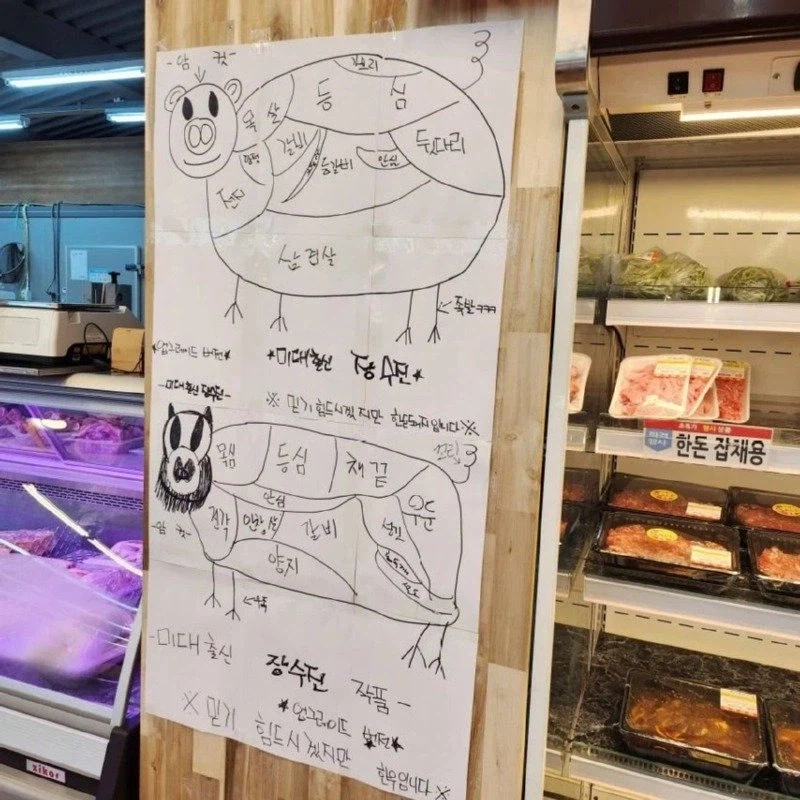 -암 컷-
꼬리
등 심
목살
갈비
등갈비
안심
뒷다리
전지
삼겹살
← 족발 ㅋㅋㅋ
*업그레이드 버전*
*미대출신 장수진*
-미대출신 장수진-
※ 믿기 힘드시겠지만 한돈돼지입니다 ※
목심
등심
채끝
우둔
안심
전각
안창살
갈비
설깃
양지
-암 컷-
←우족
-미대 출신
장수진 작품-
*업그레이드 버전*
※ 믿기 힘드시겠지만
한우입니다 ※
초특가 행사 상품
한돈 잡채용
xikor